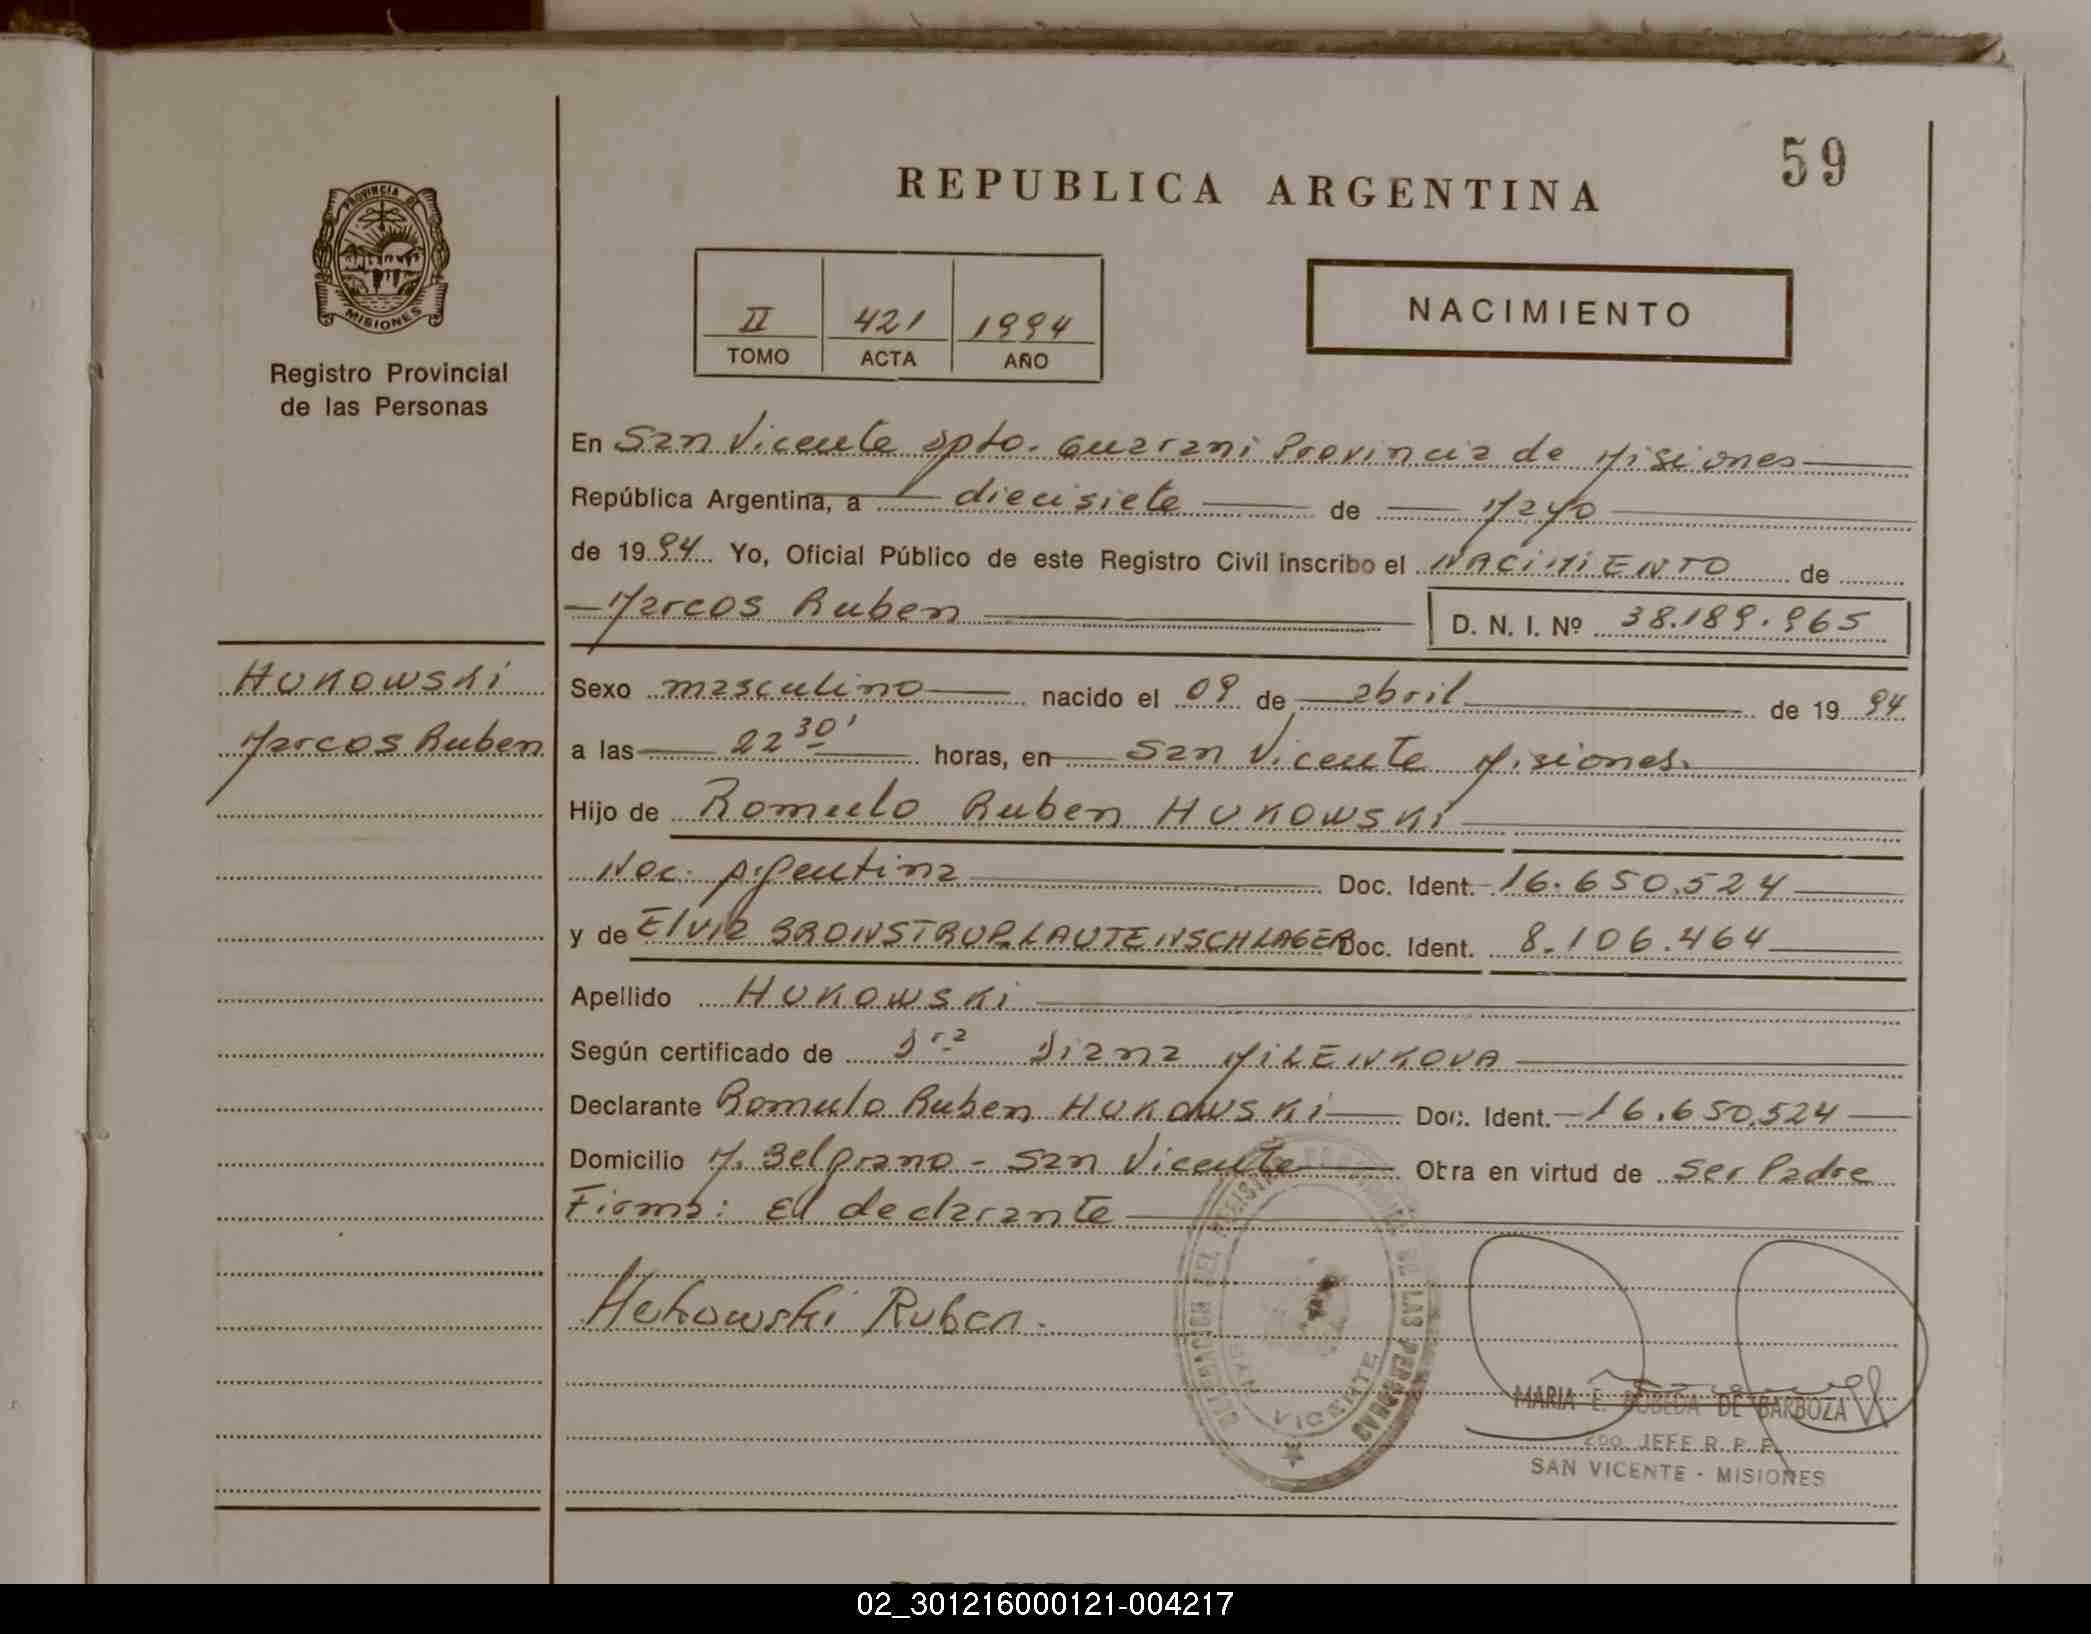 59
REPUBLICA ARGENTINA
PROVINCIA DE
MISIONES
Registro Provincial
de las Personas
II 421 1994
TOMO ACTA AÑO
NACIMIENTO
En San Vicente Dpto. Guarani Provincia de Misiones
República Argentina, a diecisiete de Mayo
de 1994 Yo, Oficial Público de este Registro Civil inscribo el NACIMIENTO de
Marcos Ruben D. N. I. Nº 38.189.965
HUKOWSKi
Marcos Ruben
Sexo masculino nacido el 09 de abril de 1994
a las 22 30' horas, en San Vicente Misiones.
Hijo de Romulo Ruben HUKOWSKi
Nac. Argentina Doc. Ident. 16.650.524
y de Elvia BRONSTRUP LAUTENSCHLAGER Doc. Ident. 8.106.464
Apellido HUKOWSKi
Según certificado de Dra Diana MiLENKOVA
Declarante Romulo Ruben HUKOWSKi Doc. Ident. 16.650.524
Domicilio M. Belgrano - San Vicente Obra en virtud de Ser Padre
Firma: El declarante
Hukowski Ruben.
DELEGACION DEL REGISTRO DE LAS PERSONAS
SAN VICENTE
MARIA E. DE BARBOZA
2do. JEFE R. P. P.
SAN VICENTE - MISIONES
02_301216000121-004217